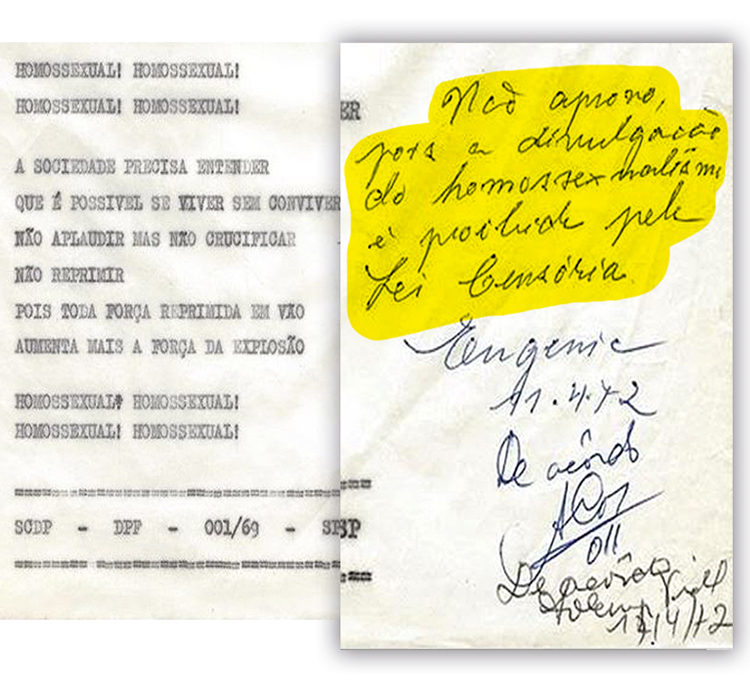 HOMOSSEXUAL! HOMOSSEXUAL!
HOMOSSEXUAL! HOMOSSEXUAL!
A SOCIEDADE PRECISA ENTENDER
QUE É POSSIVEL SE VIVER SEM CONVIVER
NÃO APLAUDIR MAS NÃO CRUCIFICAR
NÃO REPRIMIR
POIS TODA FORÇA REPRIMIDA EM VÃO
AUMENTA MAIS A FORÇA DA EXPLOSÃO
HOMOSSEXUAL! HOMOSSEXUAL!
HOMOSSEXUAL! HOMOSSEXUAL!
SCDP - DPF - 001/69 -
ER
SP
Não aprovo,
pois a divulgação
do homossexualism
é proibida pela
Lei Censória.
Eugenia
11.4.72
De acôrdo
De acôrdo